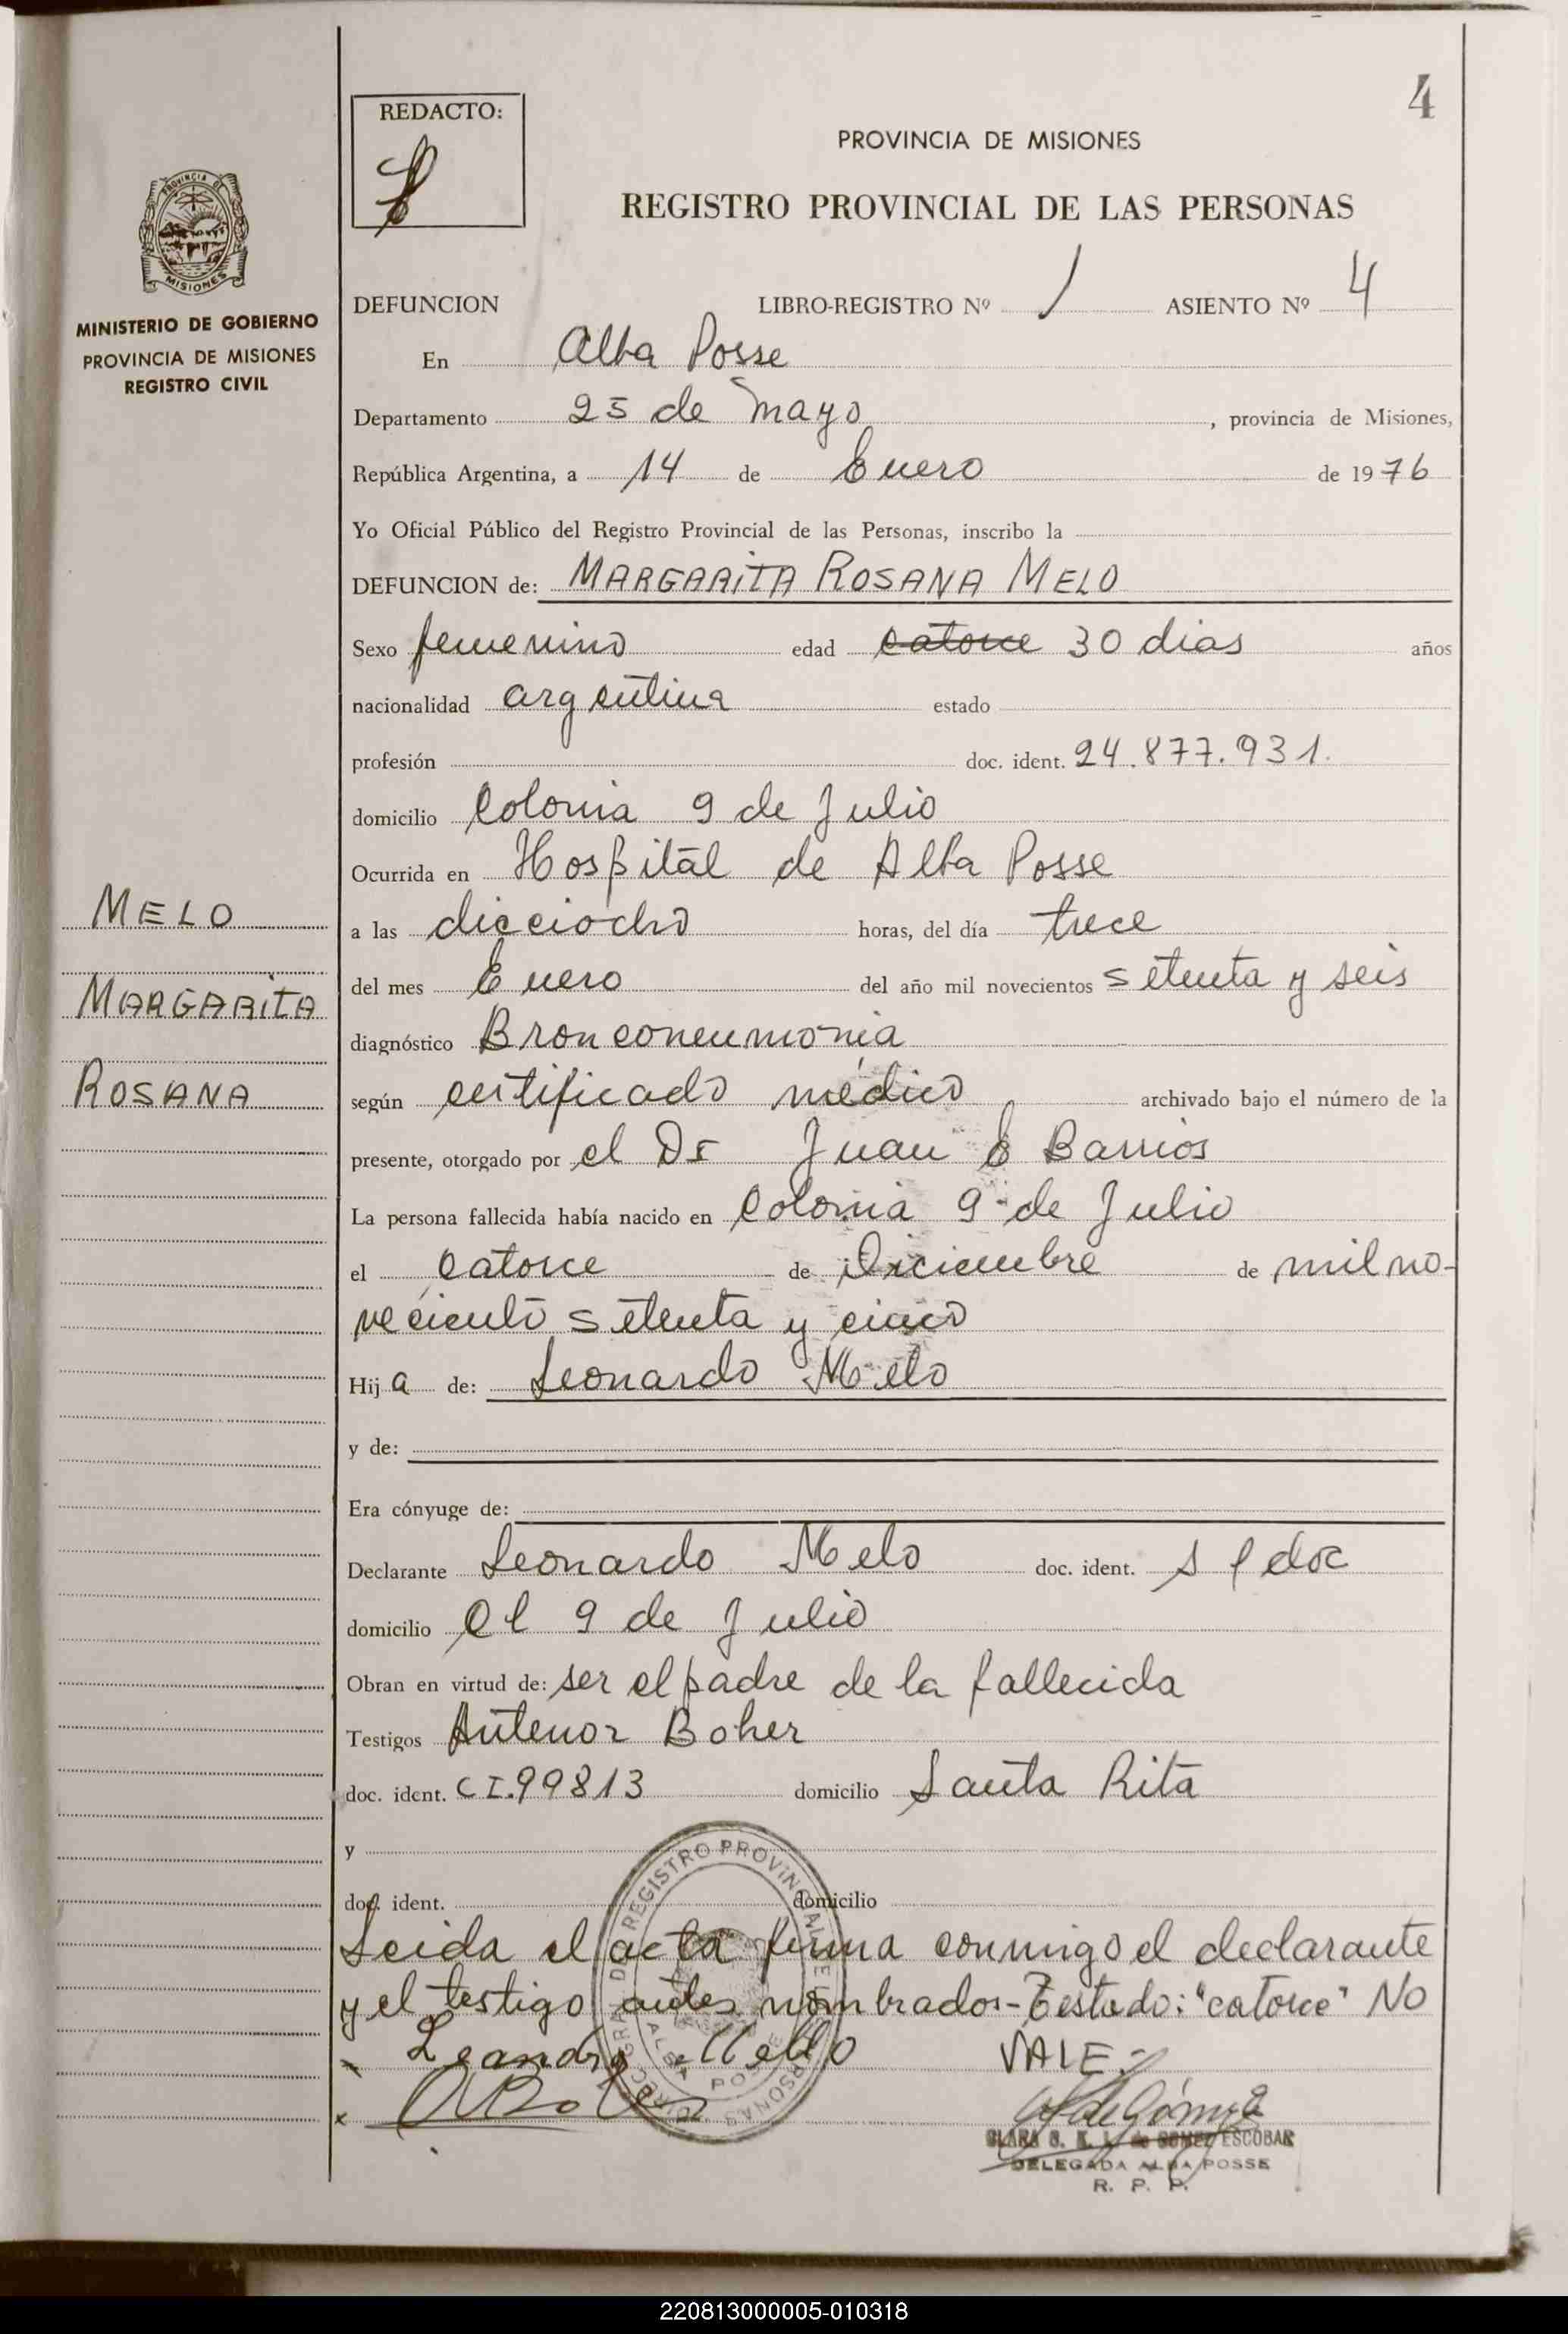 4
REDACTO:
PROVINCIA DE MISIONES
REGISTRO PROVINCIAL DE LAS PERSONAS
PROVINCIA DE
MISIONES
MINISTERIO DE GOBIERNO
PROVINCIA DE MISIONES
REGISTRO CIVIL
DEFUNCION LIBRO-REGISTRO Nº 1 ASIENTO Nº 4
En Alba Posse
Departamento 25 de Mayo, provincia de Misiones,
República Argentina, a 14 de Enero de 1976
Yo Oficial Público del Registro Provincial de las Personas, inscribo la
DEFUNCION de: MARGARITA ROSANA MELO
Sexo femenino edad catorce 30 dias años
nacionalidad argentina estado
profesión doc. ident. 24.877.931.
domicilio Colonia 9 de Julio
Ocurrida en Hospital de Alba Posse
a las dieciocho horas, del día trece
del mes Enero del año mil novecientos setenta y seis
diagnóstico Bronconeumonia
según certificado médico archivado bajo el número de la
presente, otorgado por el Dr Juan E Barrios
La persona fallecida había nacido en Colonia 9 de Julio
el catorce de Diciembre de mil no-
veciento setenta y cinco
Hija de: Leonardo Melo
y de:
Era cónyuge de:
Declarante Leonardo Melo doc. ident. S/doc
domicilio Cl 9 de Julio
Obran en virtud de: ser el padre de la fallecida
Testigos Antenor Boher
doc. ident. CI.99813 domicilio Santa Rita
y
doc. ident. domicilio
Leida el acta firma conmigo el declarante
y el testigo antes nombrados-Testado: "catorce" No
VALE:-
MELO
MARGARITA
ROSANA
REGISTRO PROVINCIAL DE
PERSONAS
ALBA POSSE
CLARA de GOMEZ ESCOBAR
DELEGADA ALBA POSSE
R. P. P.
220813000005-010318